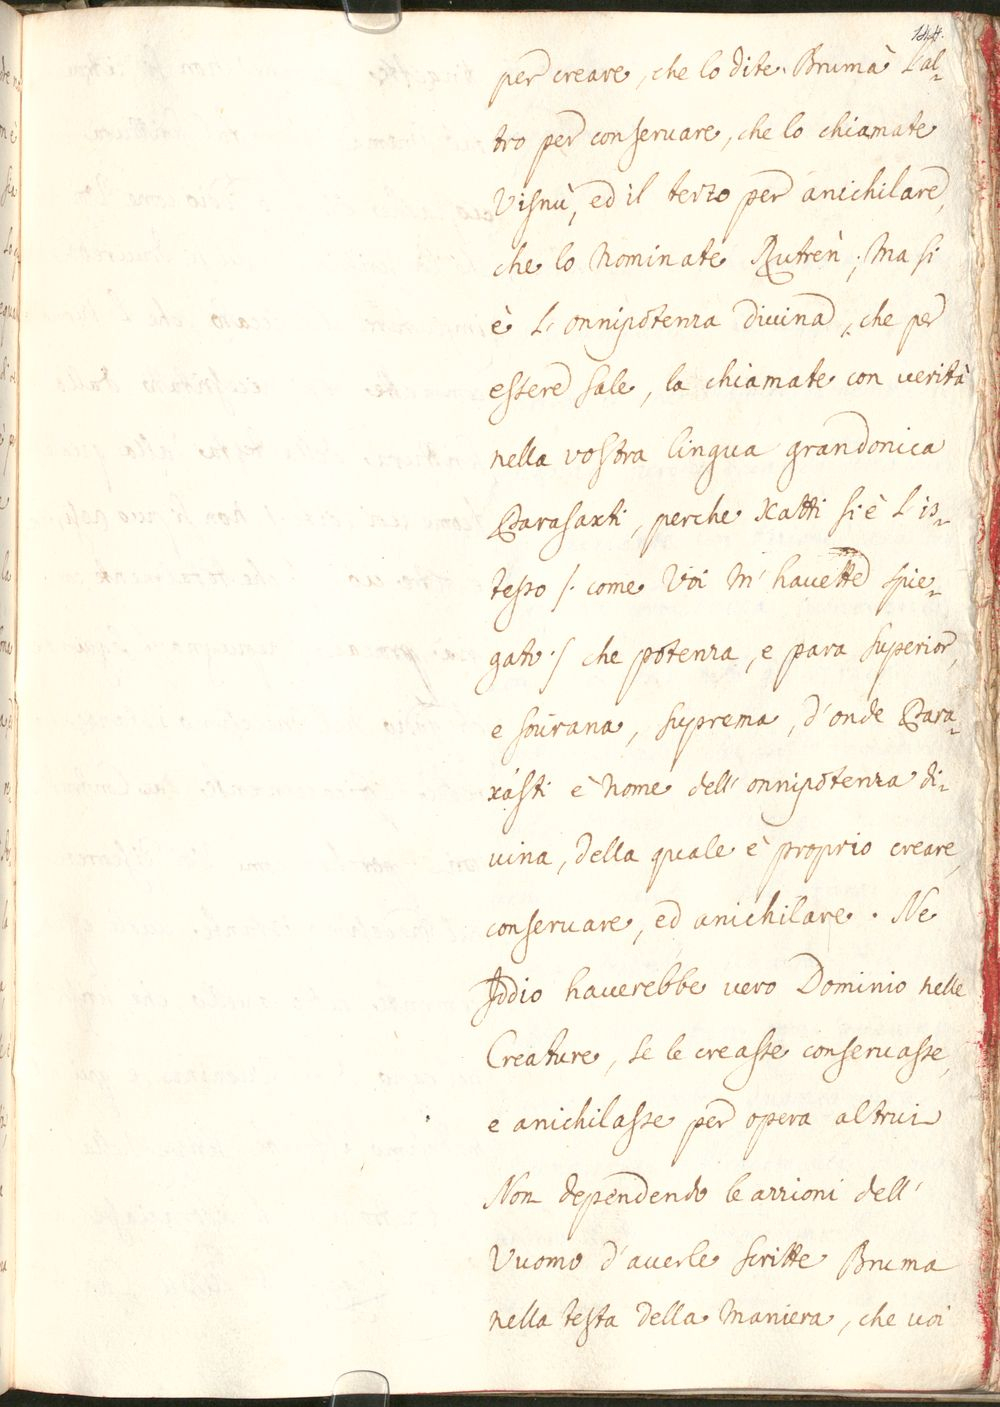 144.
per creare, che lo dite Brumà L'al-
tro per conseruare, che lo chiamate
Visnù, ed il terzo per anichilare,
che lo nominate Rutren; ma si
è L'onnipotenza diuina, che per
essere sale, la chiamate con verità
nella vostra lingua grandonica
Parasaxti, perche Xatti si è L'is-
tesso /. come Voi m'hauette spie-
gato ./ che potenza, e para superior,
e sourana, suprema, d'onde Para-
xásti è nome dell'onnipotenza di-
uina, della quale è proprio creare,
conseruare, ed anichilare. Ne
Iddio hauerebbe uero Dominio nelle
Creature, se le creasse conseruasse,
e anichilasse per opera altrui
Non dependendo le azzioni dell'
Vuomo d'auerle scritte Bruma
nella testa della maniera, che uoi